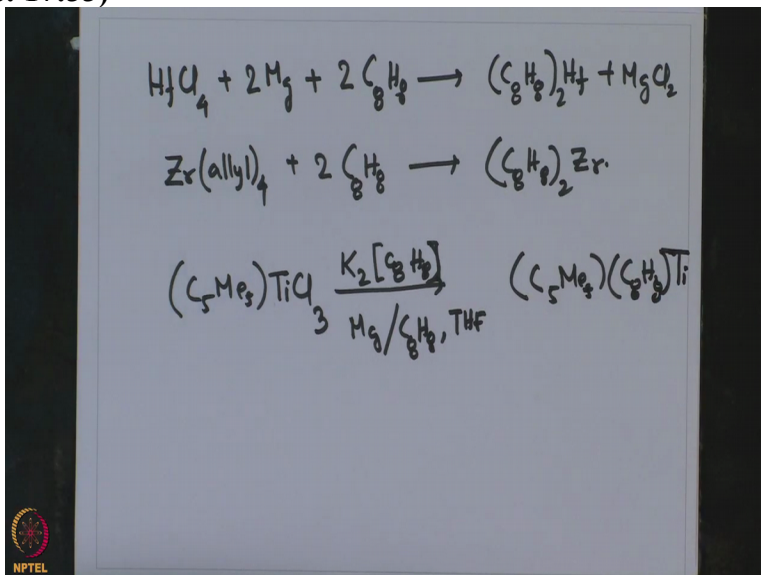 HfCl₄ + 2Mg + 2 C₈H₈ ⟶ (C₈H₈)₂Hf + MgCl₂
Zr(allyl)₄ + 2 C₈H₈ ⟶ (C₈H₈)₂Zr.
(C₅Me₅)TiCl₃ K₂[C₈H₈] ⟶ (C₅Me₅)(C₈H₈)Ti
Mg/C₈H₈, THF
NPTEL